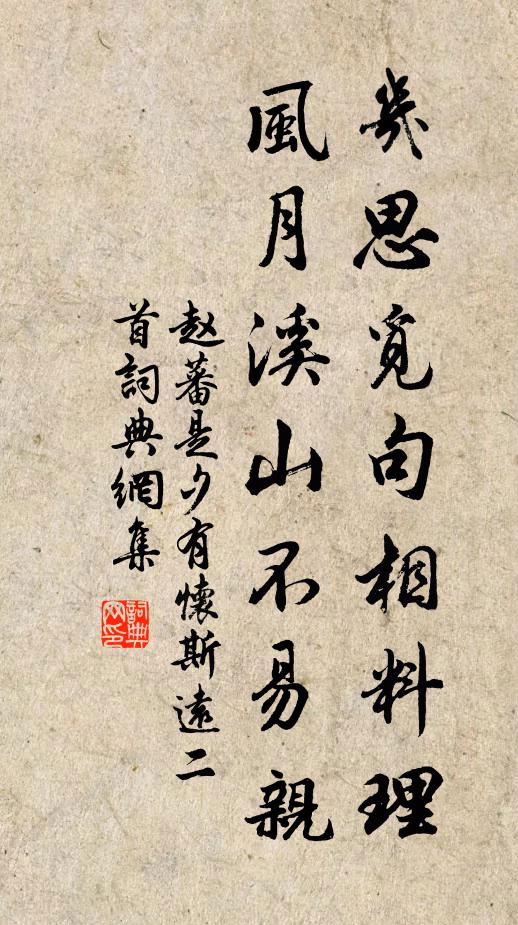 幾思覓句相料理
風月溪山不易親
赵蕃是夕有懷斯遠二
首詞典網集
詞典
网印